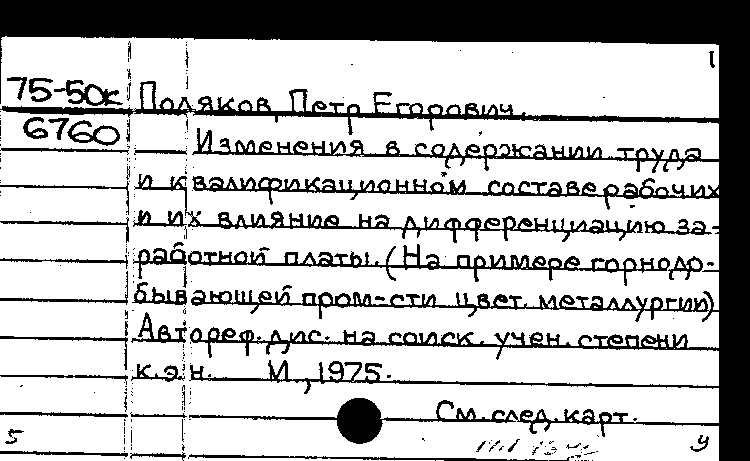 1
75-50к Поляков, Петр Егорович.
6760
Изменения в содержании труда
и квалификационном составе рабочих
и их влияние на дифференциацию за-
работной платы. (На примере горнодо-
бывающей пром-сти цвет. металлургии)
Автореф. дис. на соиск. учен. степени
к.э.н. М., 1975.
См. след. карт.
5 У